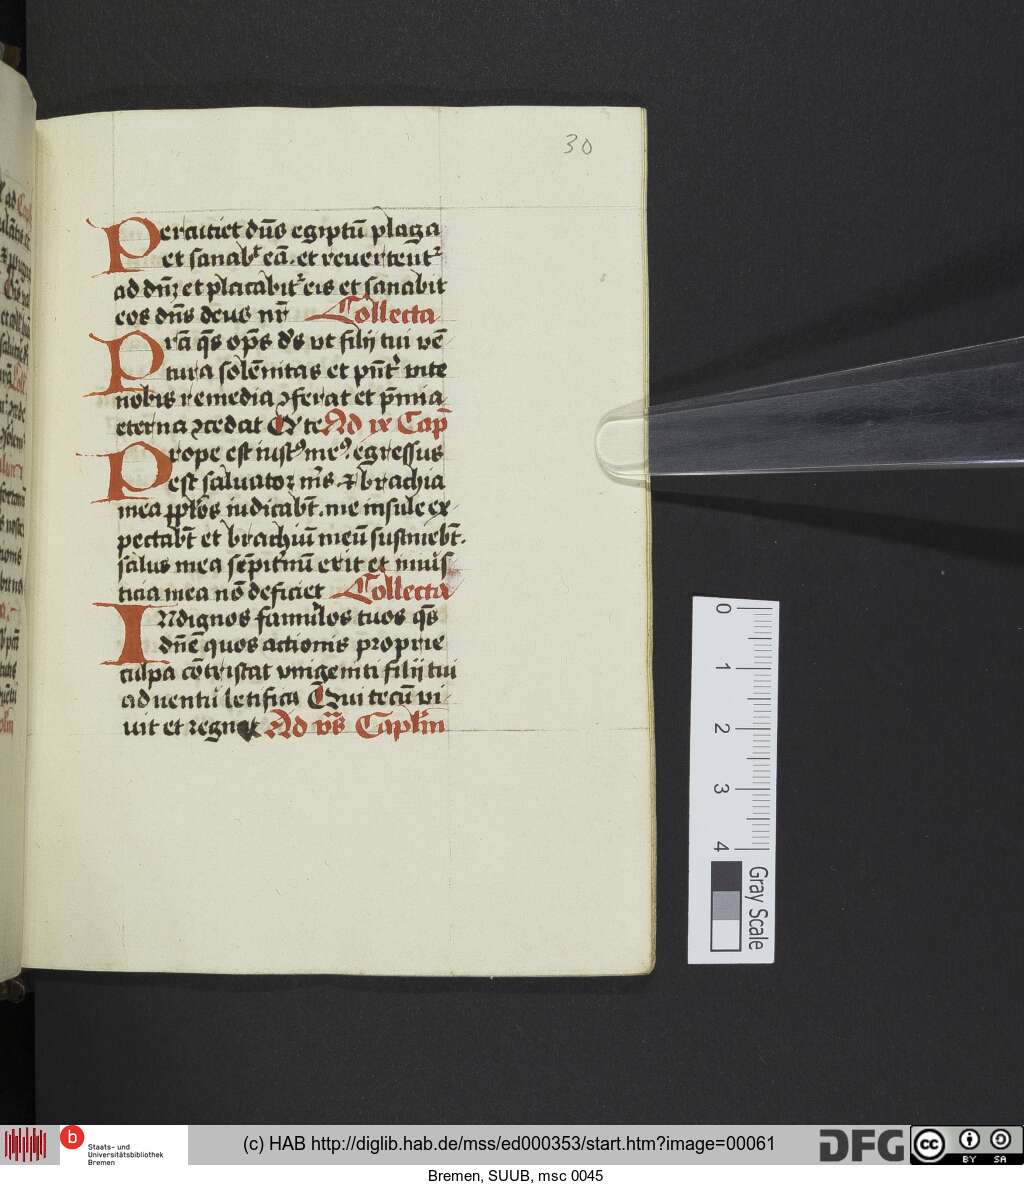 30
Percuciet dn̄s egiptū plaga
et sanabᵗ eā. et reuertentᷣ
ad dn̄ꝫ et placabitᷣ eis et sanabit
eos dn̄s deus nr̄ Collecta
Prā q̄s op̄s d's vt filij tui vē
tura solēnitas et p̄nt' vite
nobis remedia ꝯferat et p̄mia
eterna ꝯcedat Qͥ te Ad ix Cap̄
Prope est iustꝰ meꝰ. egressus
est saluator m̄s. ⁊ brachia
mea pplōs iudicabt̄. me insule ex
pectabt̄ et brachiū meū sustinebt̄.
salus mea sēpit̄nū erit et inius
ticia mea nō deficiet Collecta
INdignos famulos tuos q̄s
dn̄e quos actionis proprie
culpa cōtristat vnigeniti filij tui
aduentu letifica Qui tecū vi
uit et regnat Ad vr̄s Cap̄lm
0
1
2
3
4
Gray Scale
b Staats- und
Universitätsbibliothek
Bremen
(c) HAB http://diglib.hab.de/mss/ed000353/start.htm?image=00061
DFG
cc BY SA
Bremen, SUUB, msc 0045